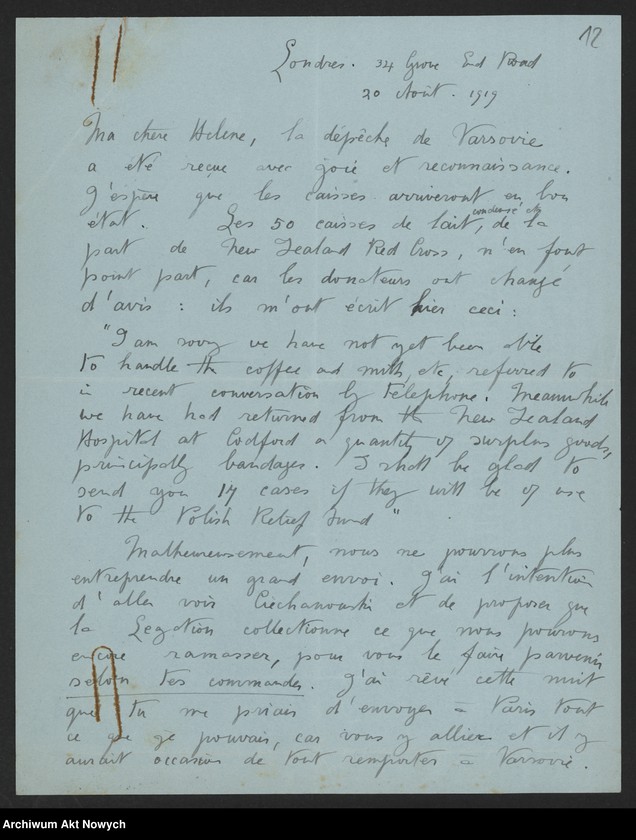 12
Londres. 34 Grove End Road
20 Août. 1919
Ma chère Helene, la dépêche de Varsovie
a été reçue avec joie et reconnaissance.
J'éspère que les caisses arriveront en bon
état. Les 50 caisses de lait, condensé etc de la
part de New Zealand Red Cross, n'en font
point part, car les donateurs ont changé
d'avis : ils m'ont écrit hier ceci :
"I am sorry we have not yet been able
to handle the coffee and milk, etc, referred to
in recent conversation by telephone. Meanwhile
we have had returned from the New Zealand
Hospital at Codford a quantity of surplus goods,
principally bandages. I shall be glad to
send you 14 cases if they will be of use
to the Polish Relief Fund"
Malheureusement, nous ne pourrons plus
entreprendre un grand envoi. J'ai l'intention
d'aller voir Ciechanowski et de proposer que
la Legation collectionne ce que nous pouvons
encore ramasser, pour vous le faire parvenir
selon tes commandes. J'ai rêvé cette nuit
que tu me priais d'envoyer à Paris tout
ce que je pouvais, car vous y alliez et il y
aurait occasion de tout remporter à Varsovie.
Archiwum Akt Nowych